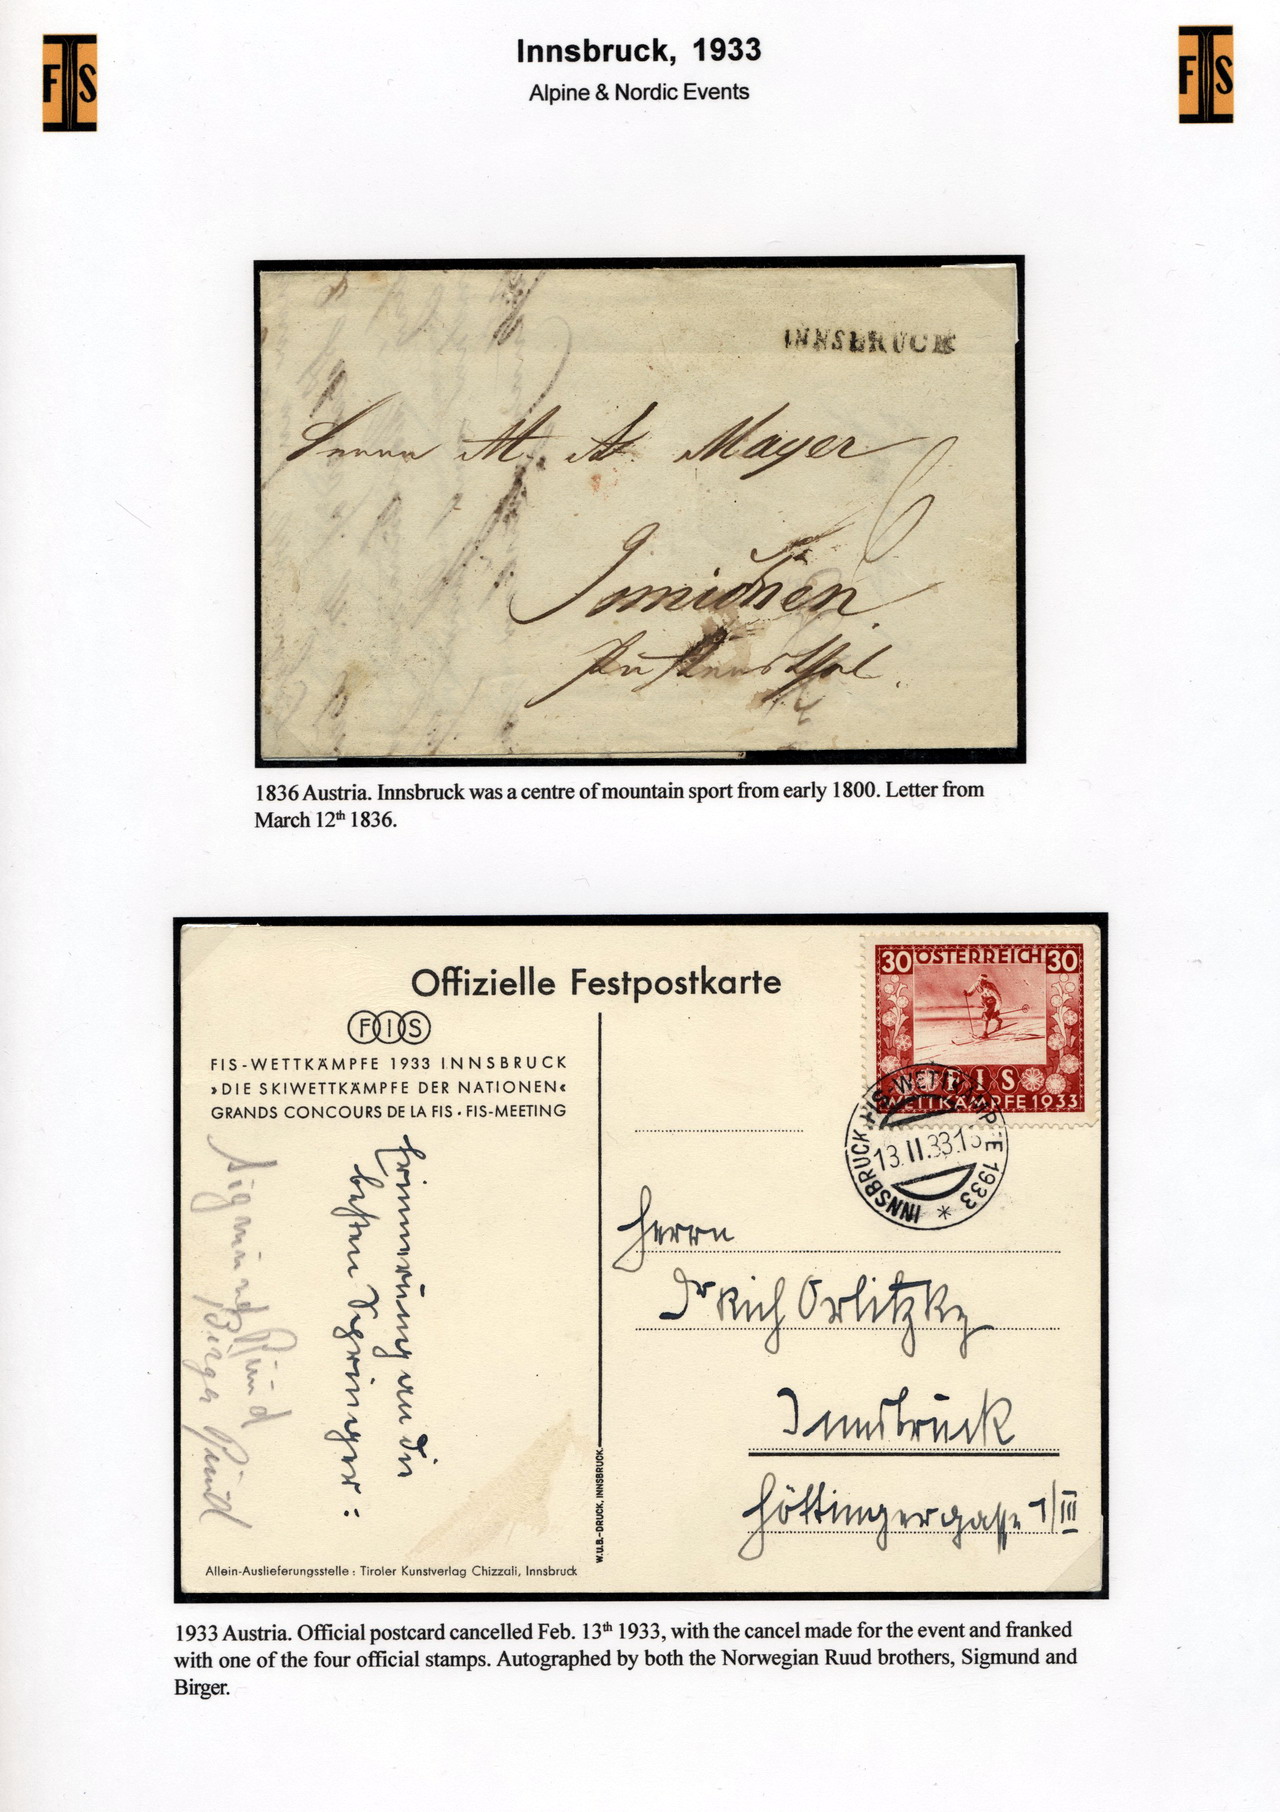 FIS
Innsbruck, 1933
FIS
Alpine & Nordic Events
INNSBRUCK
Herrn M. A. Mayer
6
Innichen
Pusterthal.
1836 Austria. Innsbruck was a centre of mountain sport from early 1800. Letter from
March 12th 1836.
Offizielle Festpostkarte
FIS
FIS-WETTKÄMPFE 1933 INNSBRUCK
»DIE SKIWETTKÄMPFE DER NATIONEN«
GRANDS CONCOURS DE LA FIS • FIS-MEETING
Erinnerung an die
besten Springer:
Sigmund Ruud
Birger Ruud
Allein-Auslieferungsstelle: Tiroler Kunstverlag Chizzali, Innsbruck
W.U.B.-DRUCK, INNSBRUCK.
30 ÖSTERREICH 30
FIS
WETTKÄMPFE 1933
INNSBRUCK FIS-WETTKÄMPFE 1933 *
13.II.33.
Herrn
Dr Rich Orlitzky
Innsbruck
Höttingergasse 1/III
1933 Austria. Official postcard cancelled Feb. 13th 1933, with the cancel made for the event and franked
with one of the four official stamps. Autographed by both the Norwegian Ruud brothers, Sigmund and
Birger.